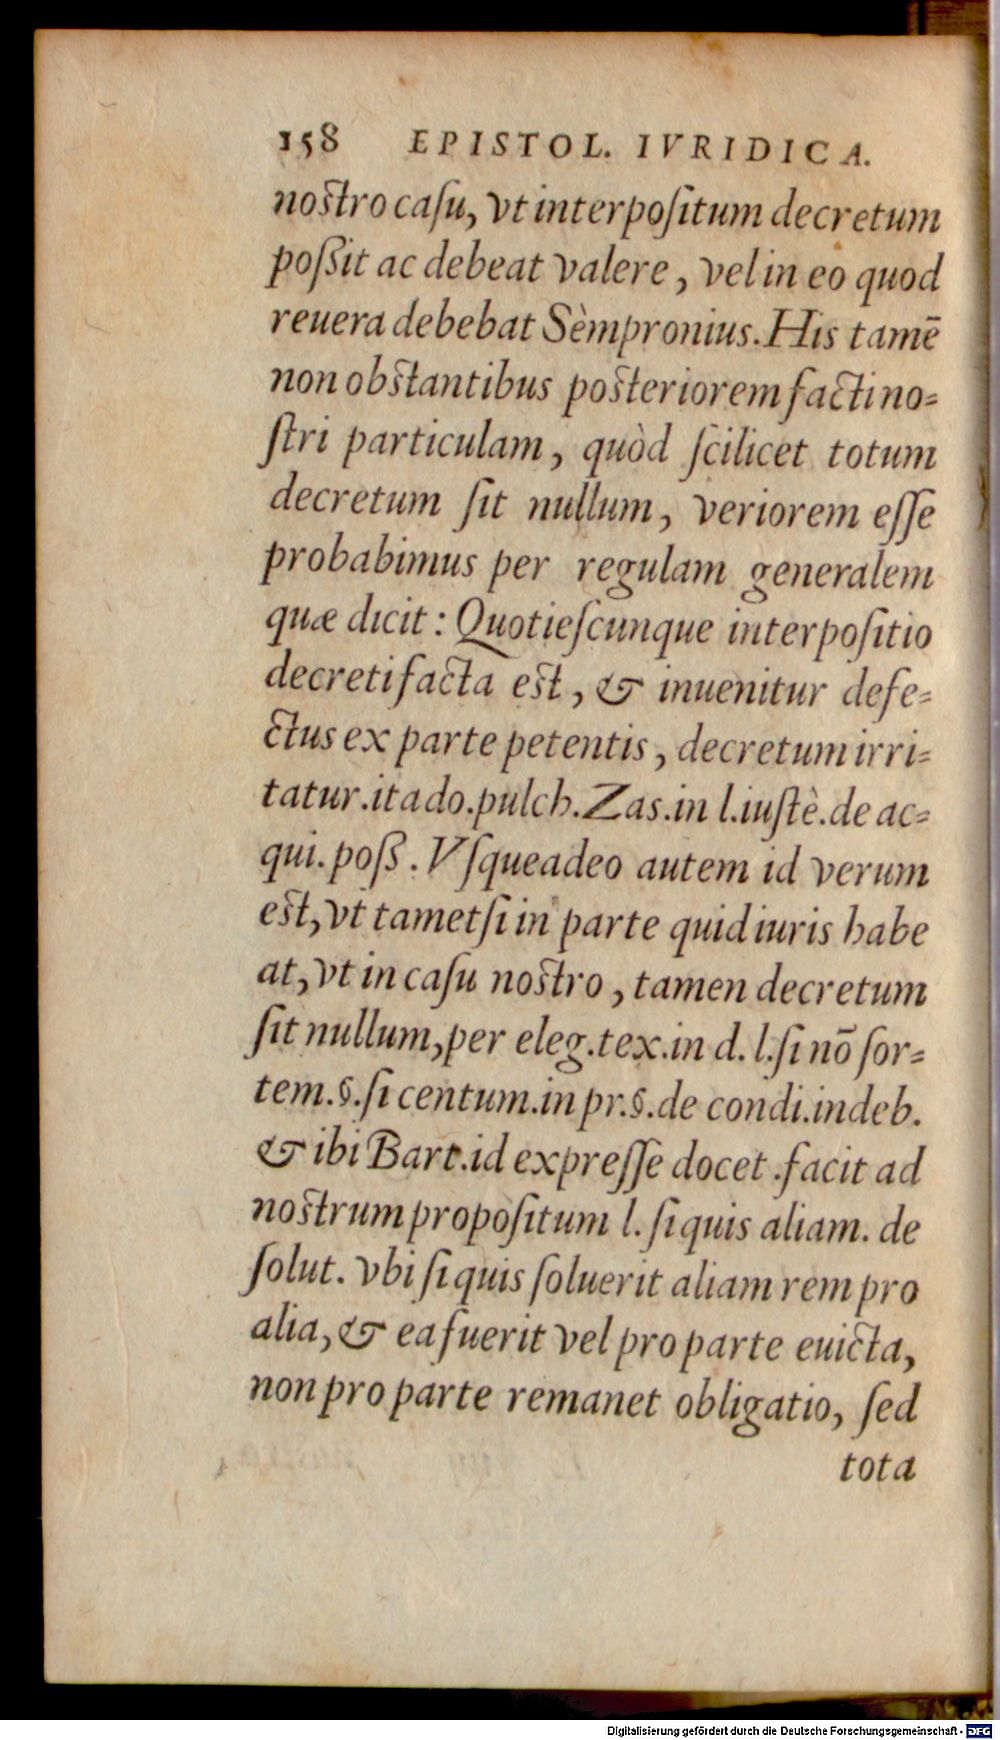 158 EPISTOL. IVRIDICA.
nostro casu, vt interpositum decretum
poßit ac debeat valere, vel in eo quod
reuera debebat Sèmpronius. His tamē
non obstantibus posteriorem facti no-
stri particulam, quòd scilicet totum
decretum sit nullum, veriorem esse
probabimus per regulam generalem
quæ dicit: Quotiescunque interpositio
decreti facta est, & inuenitur defe-
ctus ex parte petentis, decretum irri-
tatur. ita do. pulch. Zas. in l. iustè. de ac-
qui. poß. Vsqueadeo autem id verum
est, vt tametsi in parte quid iuris habe
at, vt in casu nostro, tamen decretum
sit nullum, per eleg. tex. in d. l. si nō sor-
tem. §. si centum. in pr. §. de condi. indeb.
& ibi Bart. id expresse docet. facit ad
nostrum propositum l. si quis aliam. de
solut. vbi si quis soluerit aliam rem pro
alia, & ea fuerit vel pro parte euicta,
non pro parte remanet obligatio, sed
tota
Digitalisierung gefördert durch die Deutsche Forschungsgemeinschaft - DFG